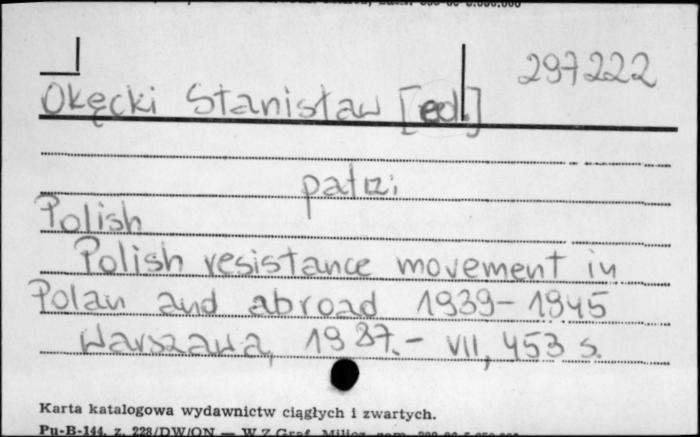 297222
Okęcki Stanisław [ed.]
patrz:
Polish
Polish resistance movement in
Polan and abroad 1939-1945
Warszawa, 1987.- VII, 453 s.
Karta katalogowa wydawnictw ciągłych i zwartych.
Pu-B-144, z. 228/DW/ON — WZGraf. Milicz, zam.